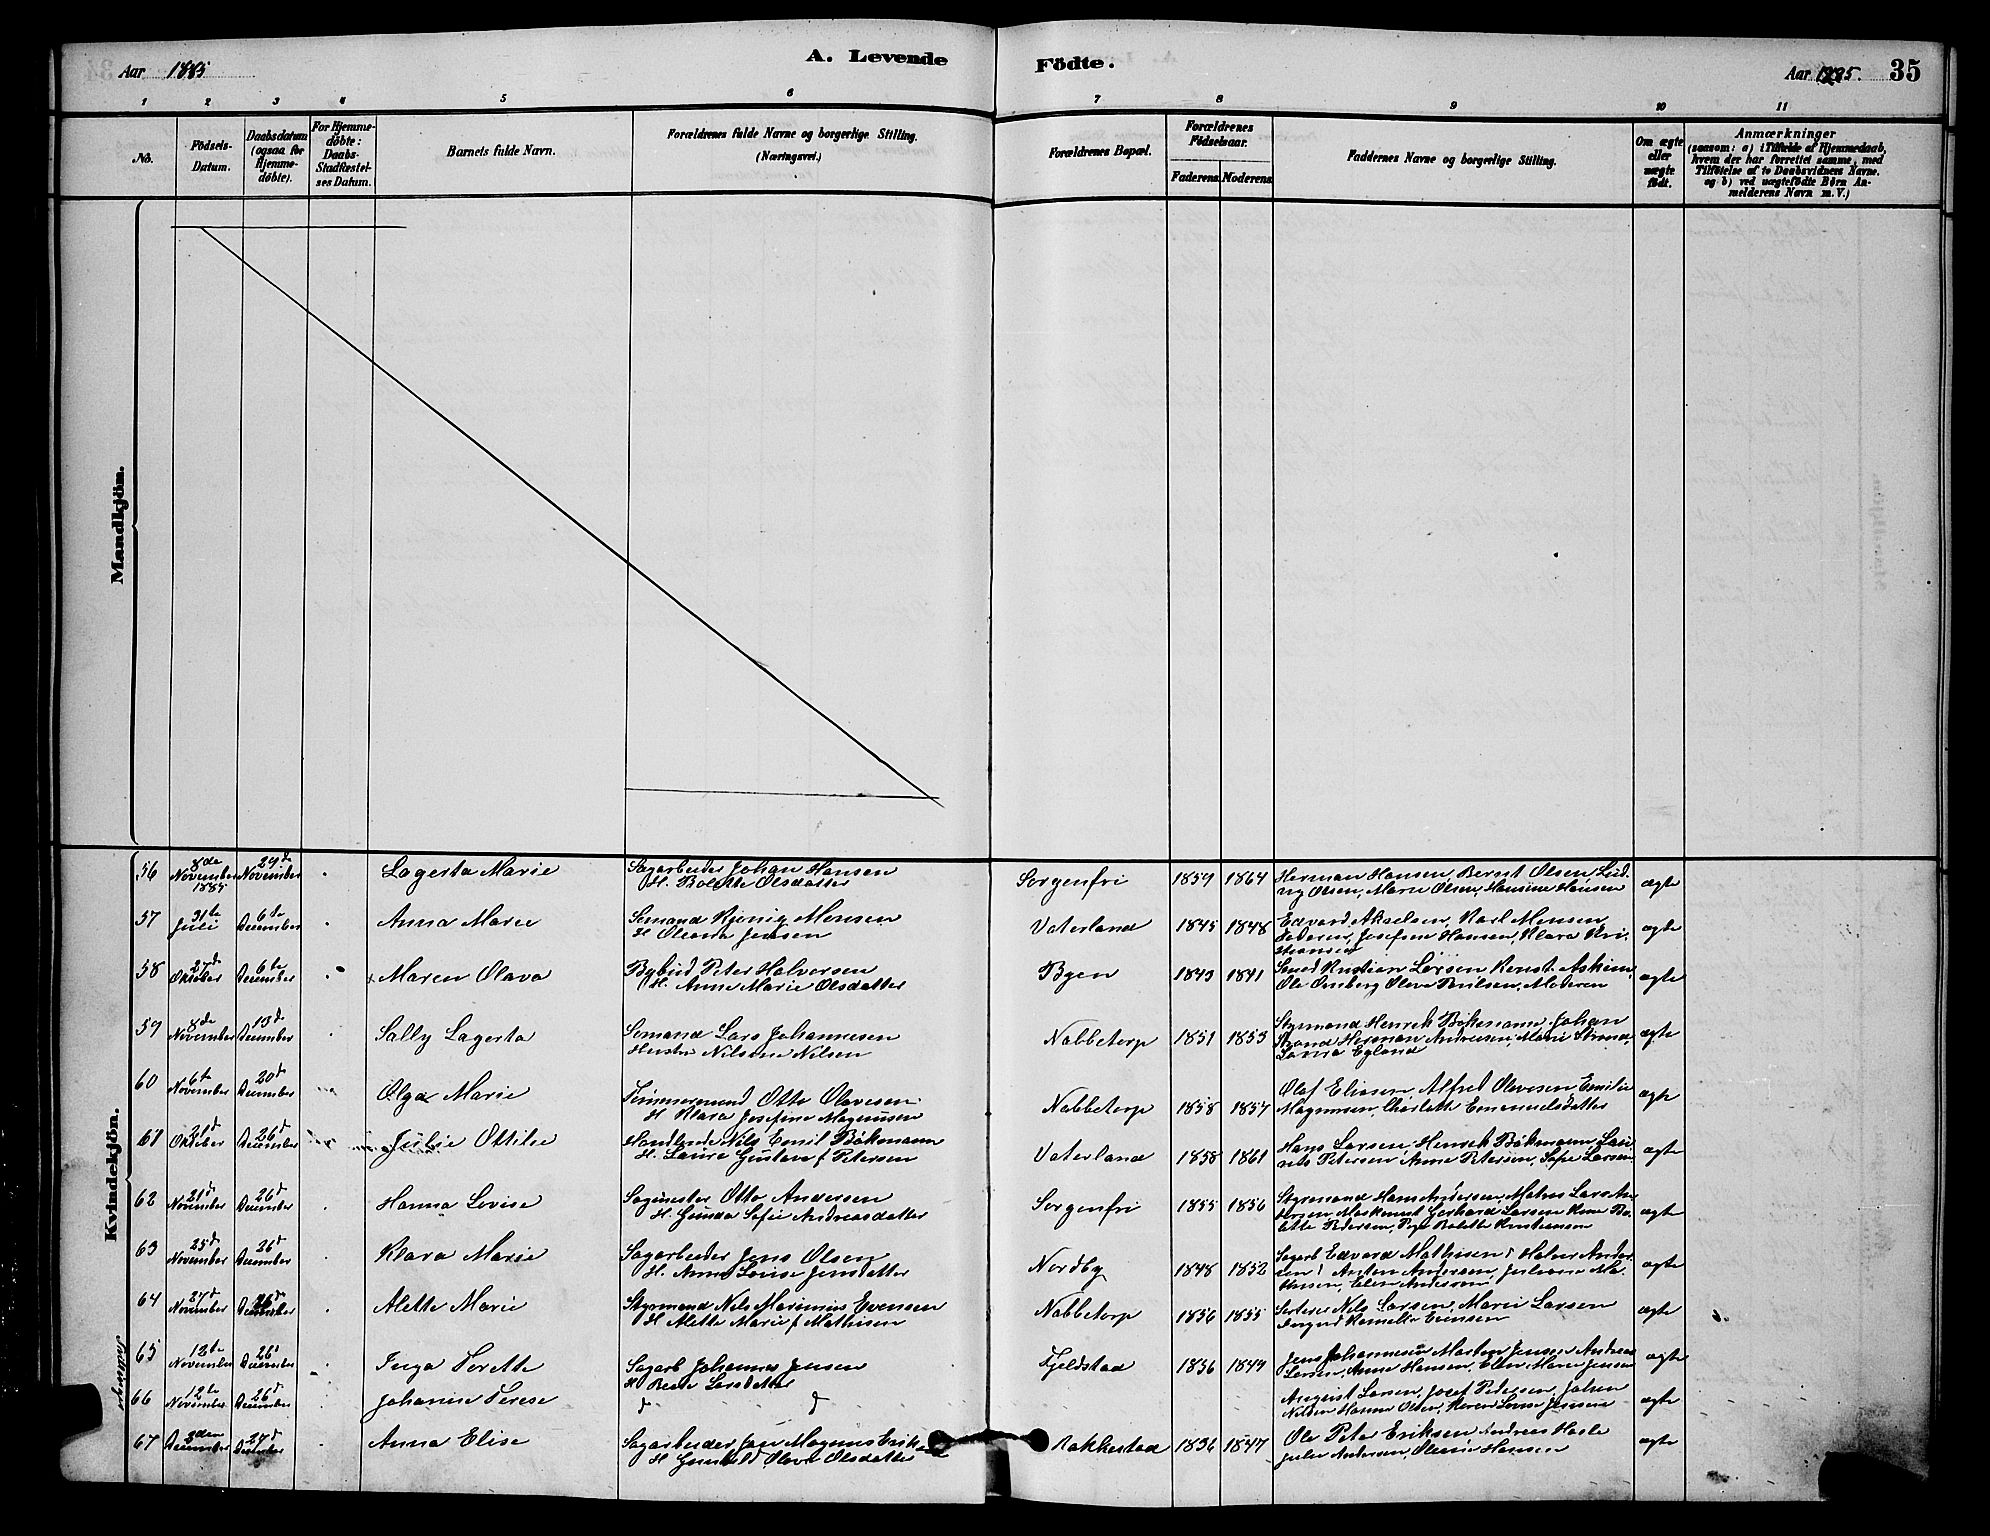 Aar 1885
A. Levende
Födte.
Aar 1885. 35
1 2 3 4 5 6 7 8 9 10 11
No.
Födsels-
Datum.
Daabsdatum
(ogsaa for
Hjemme-
döbte).
For Hjemme-
döbte:
Daabs-
Stadfæstel-
ses Datum.
Barnets fulde Navn.
Forældrenes fulde Navne og borgerlige Stilling.
(Næringsvei.)
Forældrenes Bopæl.
Forældrenes
Födselsaar.
Faderens. Moderens.
Faddernes Navne og borgerlige Stilling.
Om ægte
eller
uægte
födt.
Anmærkninger
(saasom: a) i Tilfælde af Hjemmedaab,
hvem der har forrettet samme, med
Tilföielse af to Daabsvidners Navne.
og b) ved uægtefödte Börn An-
melderens Navn m.V.)
Mandkjön.
Kvindekjön.
56 8de November 1885 29de November Lagerta Marie
Sagarbeider Johan Hansen
H. Bolette Olsdatter
Sorgenfri 1859 1864
Herman Hansen, Bernt Olsen, Lud-
vig Olsen, Marie Olsen, Hansine Hansen
ægte
57 31te Juli 6te December Anna Marie
Sömand Monsen
Jensen
Vaterland 1845 1848
Edvard Akselsen, Karl Monsen,
Faderen, Josefine Hansen, Klara Kri-
stiansen
ægte
58 27de Oktober 6te December Maren Olava
Bybud Peter Halvorsen
H. Anne Marie Olsdatter
Byen 1843 1841
Smed Kristian Larsen, Askim,
Ole Olava Moderen
ægte
59 8de November 13de December Sally Lagerta
Sömand Lars Johannesen
Nilsen
Nabbetorp 1851 1853
Styrmand Henrik Bökmann, Johan
Strand, Herman Andresen, Marie Strand,
Laura Egland
ægte
60 6te November 20de December Olga Marie
Tömmermand Otto Olavesen
H. Klara Josefine Magnussen
Nabbetorp 1858 1857
Olaf Eliasen, Alfred Olavesen, Emilie
Magnussen, Charlotte Emanuelsdatter
ægte
61 21de Oktober 26de December Julie Ottilie
Handlende Nils Emil Bökmann
H. Laura Gustava f. Petersen
Vaterland 1858 1861
Hans Larsen, Henrik Bökmann, Lau-
rits Petersen, Anna Petersen, Sofie Larsen
ægte
62 21de November 26de December Hanna Lovise
Sagmester Otto Andersen
H. Gunda Sofie Andreasdatter
Sorgenfri 1855 1856
Styrmand Hans Andersen, Lars An-
dersen, Maskinist Gerhard Larsen, Kone Bo-
lette Pedersen, Pige Bolette Kristiansen
ægte
63 25de November 26de December Klara Marie
Sagarbeider Jens Olsen
H. Anne Lovise Jensdatter
Nordby 1848 1852
Sagarb. Edvard Mathisen, Halvor Ander-
sen, Anton Andersen, Juliane Ma-
thisen, Elen Andersen
ægte
64 27de November 26de December Alette Marie
Styrmand Nils Marinius Evensen
H. Alette Marie f. Mathisen
Nabbetorp 1856 1855
Nils Larsen, Marie Larsen
Evensen
ægte
65 12te November 26de December Inga Torette
Sagarb. Johannes Jensen
H. Larsdatter
Fjeldstad 1856 1849
Jens Johannesen, Morten Jensen, Andreas
Larsen, Anne Hansen, Elen Marie Jensen
ægte
66 12te November 26de December Johanne Terese
d d
August Larsen, Josef Petersen, Johan
Nilsen, Hanna Olsen, Jensen
ægte
67 3den December 27de December Anna Elise
Sagarbeider Magnus Erik-
H. Gunhild Olava Olsdatter
Rakkestad 1836 1847
Ole Peter Eriksen, Andreas Hasle
Julie Andersen, Hansen
ægte